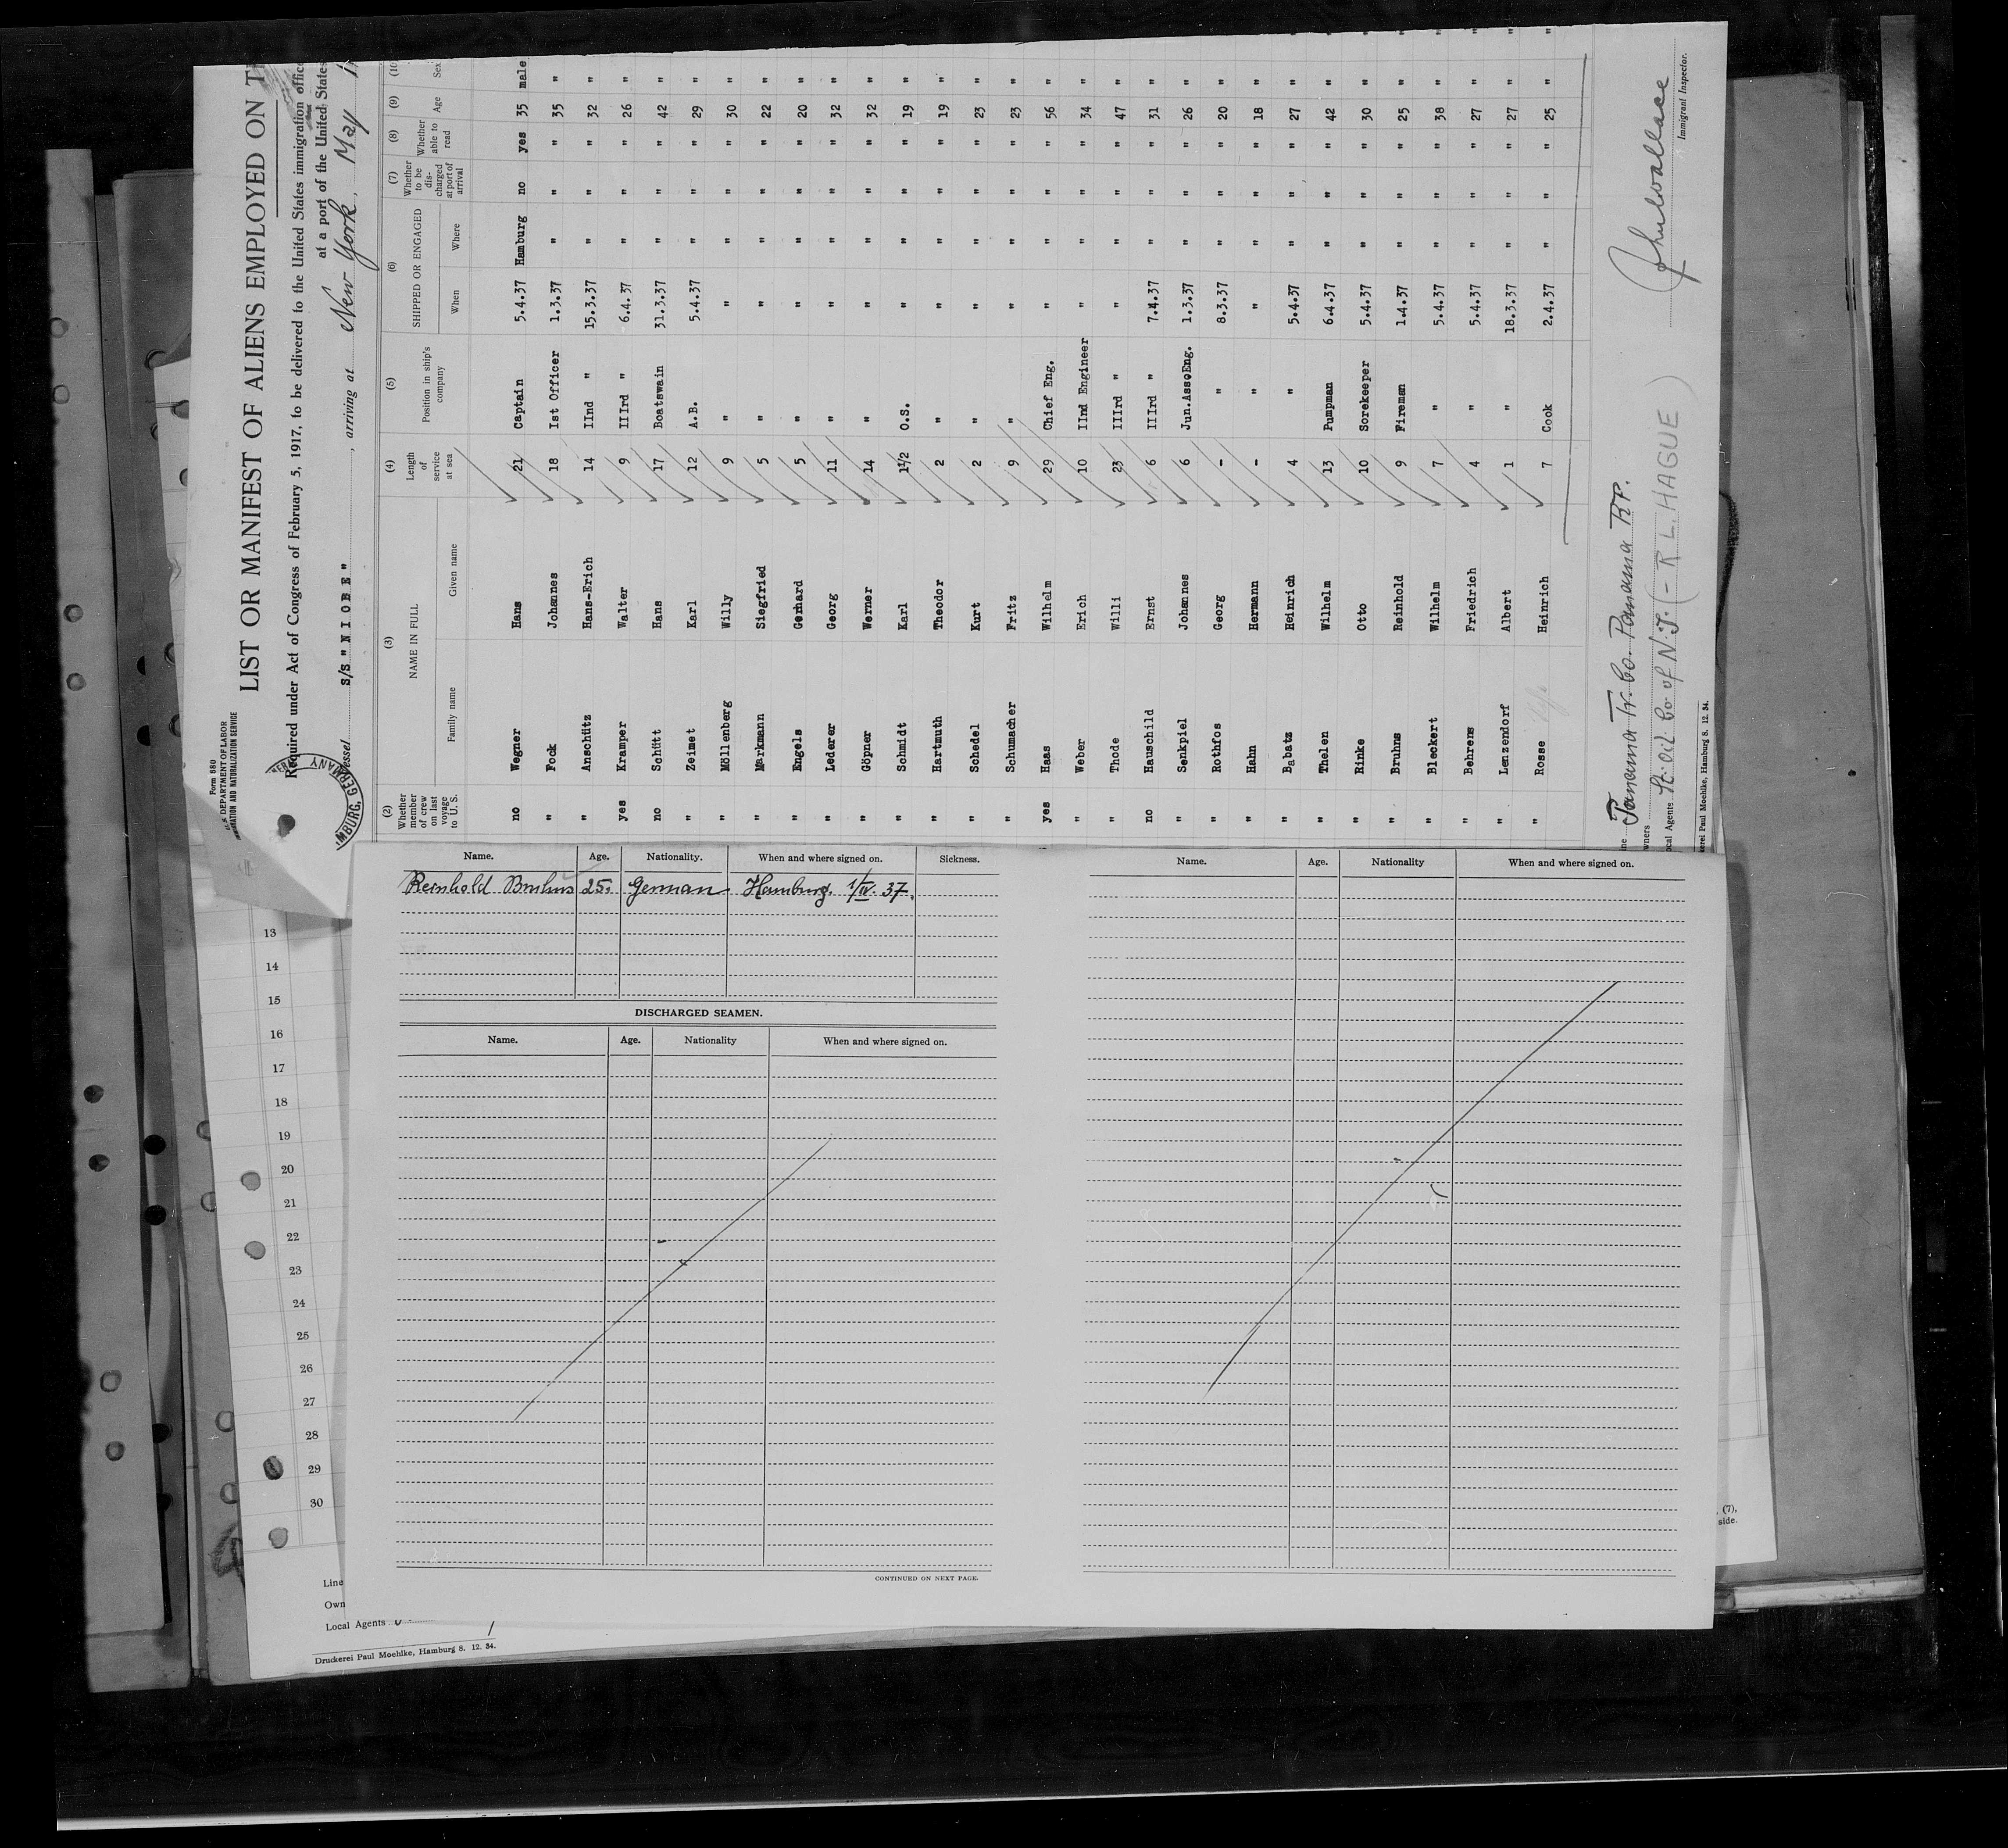 Form 680
U. S. DEPARTMENT OF LABOR
IMMIGRATION AND NATURALIZATION SERVICE
LIST OR MANIFEST OF ALIENS EMPLOYED ON
Required under Act of Congress of February 5, 1917, to be delivered to the United States immigration
at a port of the United States
Vessel S/S "NIOBE", arriving at New York, May
(2) (3) (4) (5) (6) (7) (8) (9) (10
Whether member of crew on last voyage to U. S. NAME IN FULL Length of service at sea Position in ship's company SHIPPED OR ENGAGED Whether to be discharged at port of arrival Whether able to read Age Sex
Family name Given name When Where
no Wegner Hans 21 Captain 5.4.37 Hamburg no yes 35 male
" Fock Johannes 18 1st Officer 1.3.37 " " " 35 "
" Anschütz Hans-Erich 14 IInd " 15.3.37 " " " 32 "
yes Kramper Walter 9 IIIrd " 6.4.37 " " " 26 "
no Schütt Hans 17 Boatswain 31.3.37 " " " 42 "
" Zeimet Karl 12 A.B. 5.4.37 " " " 29 "
" Möllenberg Willy 9 " " " " " 30 "
" Markmann Siegfried 5 " " " " " 22 "
" Engels Gerhard 5 " " " " " 20 "
" Lederer Georg 11 " " " " " 32 "
" Göpner Werner 14 " " " " " 32 "
" Schmidt Karl 1½ O.S. " " " " 19 "
" Hartmuth Theodor 2 " " " " " 19 "
" Schedel Kurt 2 " " " " " 23 "
" Schumacher Fritz 9 " " " " " 23 "
yes Haas Wilhelm 29 Chief Eng. " " " " 56 "
" Weber Erich 10 IInd Engineer " " " " 34 "
" Thode Willi 23 IIIrd " " " " " 47 "
no Hauschild Ernst 6 IIIrd " 7.4.37 " " " 31 "
" Senkpiel Johannes 6 Jun.AssoEng. 1.3.37 " " " 26 "
" Rothfos Georg - " 8.3.37 " " " 20 "
" Hahn Hermann - " " " " " 18 "
" Babatz Heinrich 4 " 5.4.37 " " " 27 "
" Thelen Wilhelm 13 Pumpman 6.4.37 " " " 42 "
" Rinke Otto 10 Sorekeeper 5.4.37 " " " 30 "
" Bruhns Reinhold 9 Fireman 1.4.37 " " " 25 "
" Bleckert Wilhelm 7 " 5.4.37 " " " 38 "
" Behrens Friedrich 4 " 5.4.37 " " " 27 "
" Lenzendorf Albert 1 " 18.3.37 " " " 27 "
" Rosse Heinrich 7 Cook 2.4.37 " " " 25 "
Line Panama Tr. Co. Panama R.P.
Owners
Local Agents St. Oil Co of N.J. (- R L. HAGUE)
John Wallace
Immigrant Inspector.
Druckerei Paul Moehlke, Hamburg 8. 12. 34.
HAMBURG, GERMANY
Name. Age. Nationality. When and where signed on. Sickness.
Reinhold Bruhns 25. German Hamburg. 1/IV. 37.
DISCHARGED SEAMEN.
Name. Age. Nationality When and where signed on.
CONTINUED ON NEXT PAGE.
Name. Age. Nationality When and where signed on.
13
14
15
16
17
18
19
20
21
22
23
24
25
26
27
28
29
30
Line
Own
Local Agents
Druckerei Paul Moehlke, Hamburg 8. 12. 34.
(7),
side.